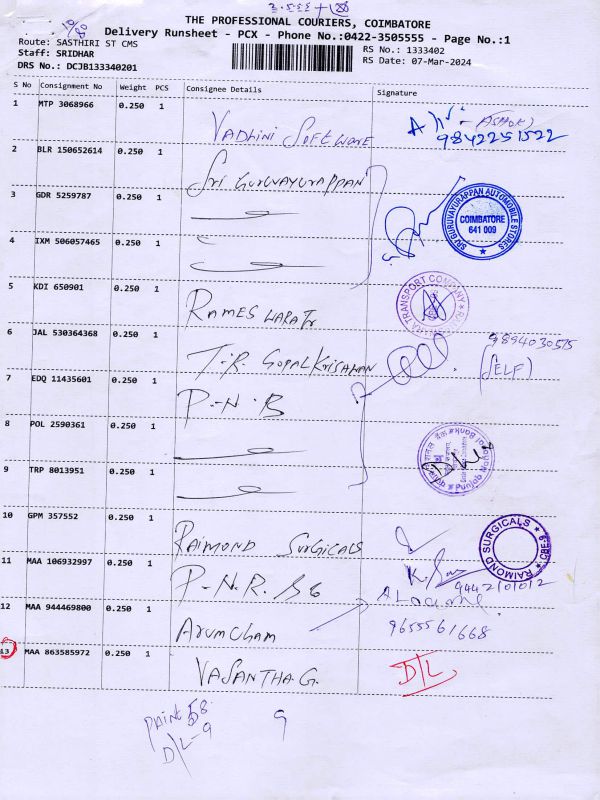 THE PROFESSIONAL COURIERS, COIMBATORE
Delivery Runsheet - PCX - Phone No.:0422-3505555 - Page No.:1
Route: SASTHIRI ST CMS
RS No.: 1333402
Staff: SRIDHAR
RS Date: 07-Mar-2024
DRS No.: DCJB133340201
S No Consignment No Weight PCS Consignee Details Signature
1 MTP 3068966 0.250 1 VADHINI SOFTWARE
9842251522
2 BLR 150652614 0.250 1 SRI GURUVAYURAPPAN
3 GDR 5259787 0.250 1
SRI GURUVAYURAPPAN AUTOMOBILE STORES
COIMBATORE
641 009
4 IXM 506057465 0.250 1
5 KDI 650901 0.250 1 RAMESWARA Tr
TRANSPORT COMPANY
6 JAL 530364368 0.250 1 T.R. GOPALKRISHNAN
9894030575
(SELF)
7 EDQ 11435601 0.250 1 P.N.B
8 POL 2590361 0.250 1
9 TRP 8013951 0.250 1
10 GPM 357552 0.250 1 RAIMOND SURGICALS
RAIMOND SURGICALS CBE-9
11 MAA 106932997 0.250 1 P.N.R.
12 MAA 944469800 0.250 1 ARUMCHAM
9655561668
13 MAA 863585972 0.250 1 VASANTHA.G.
D/L
D/L-9
9